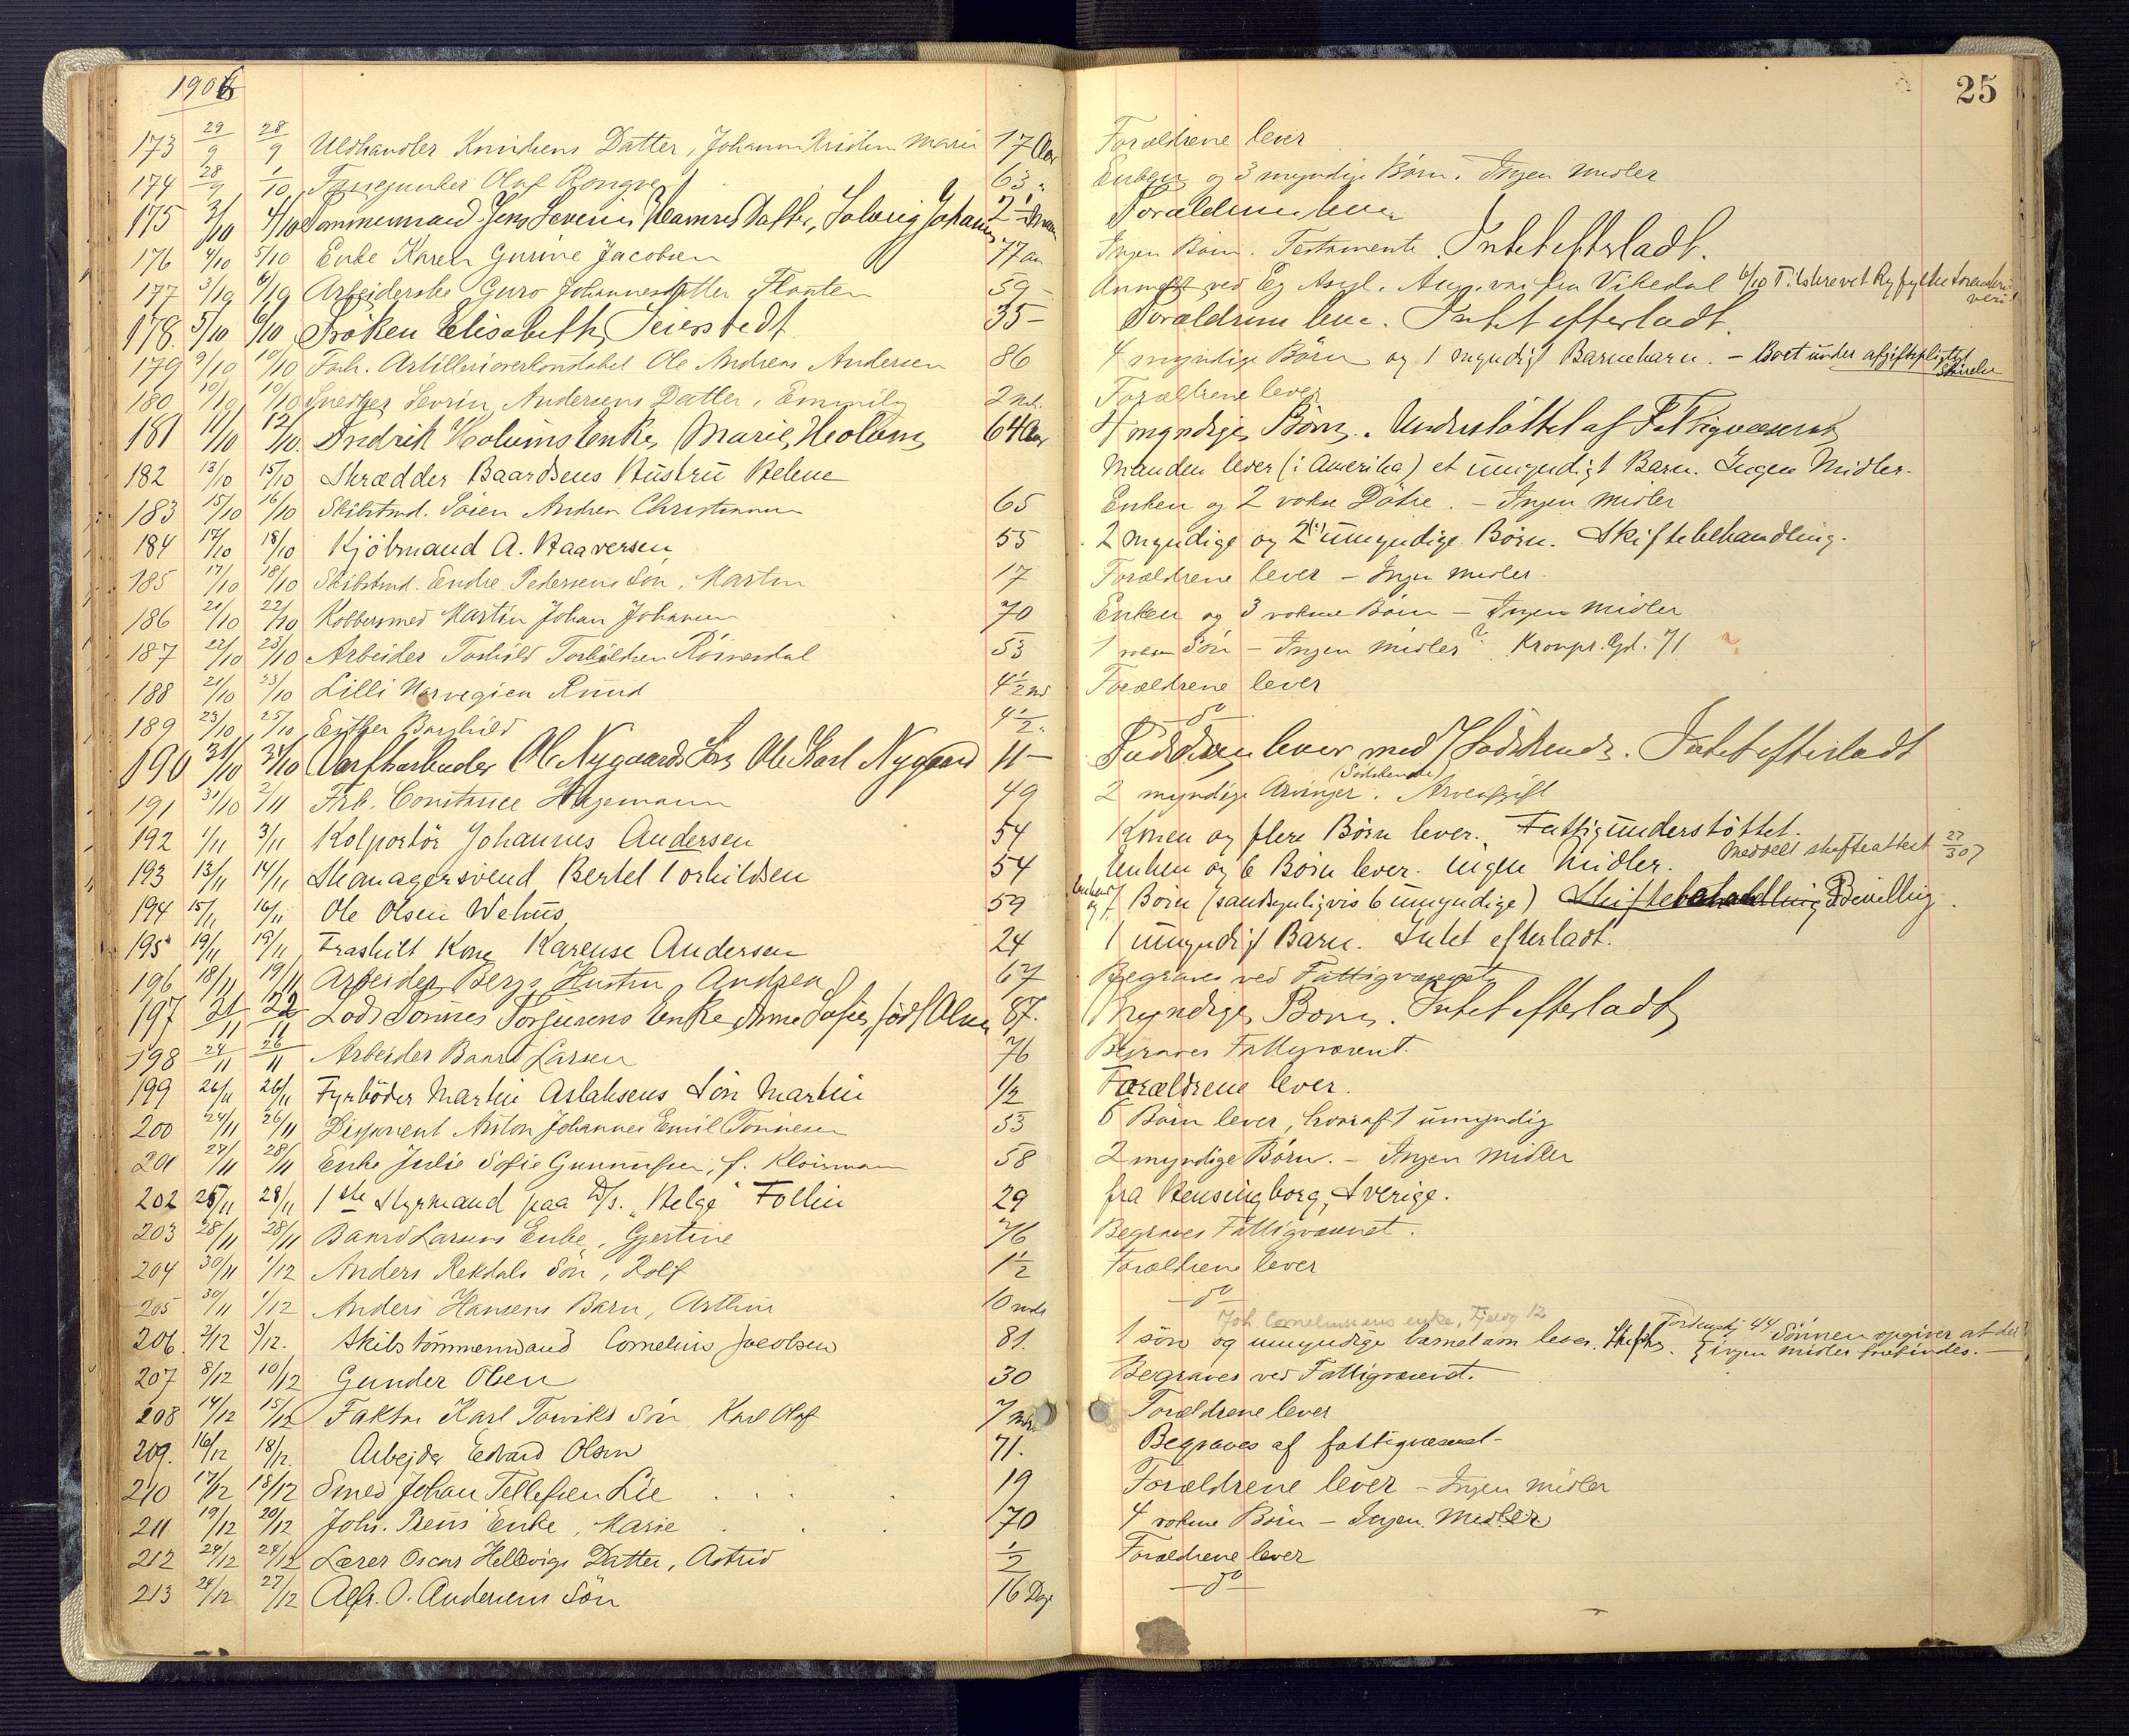 1906
25
173 29/9 28/9 Uldhandler Knudsens Datter, Johanna Kristine Marie 17 Aar Forældrene lever
174 28/9 1/10 Olaf Rongve 63 " Enken og 3 myndige Børn. Ingen midler
175 3/10 4/10 Tømmermand Jens Severin Hamres Datter, Solveig Johanne 2 1/2 Forældrene lever
176 4/10 5/10 Enke Karen Gurine Jacobsen 77 aar Ingen Børn. Testamente. Intet efterladt.
177 3/10 6/10 Arbeiderske Guro Johannesdatter Flaaten 59 - Anmeldt ved Eg Asyl. Ang. var fra Vikedal 6/10 Tilskrevet Ryfylke Sorenskriveri
178. 5/10 6/10 Frøken Elisabeth Seierstedt 35 - Forældrene lever. Intet efterladt.
179 9/10 10/10 Forh. Artillerioverkonstabel Ole Andreas Andersen 86 4 myndige Børn og 1 myndigt Barnebarn. - Boet under afgiftspligtigt Størrelse
180 10/10 10/10 Snedker Sevrin Andersens Datter, Emmily 2 md. Forældrene lever
181 11/10 12/10. Fredrik Holums Enke, Marie Holum 64 Aar 4 myndige Børn. Understøttet af Fattigvæsenet
182 13/10 15/10 Skrædder Baardsens Hustru Helene Manden lever (i Amerika) et umyndigt Barn. Ingen Midler.
183 15/10 16/10 Skibstmd. Søren Andreas Christiansen 65 Enken og 2 voksne Døtre. - Ingen midler
184 17/10 18/10 Kjøbmand A. Haaversen 55 2 myndige og 2 (!) umyndige Børn. Skiftebehandling.
185 17/10 18/10 Skibstmd. Endre Pedersens Søn, Martin 17 Forældrene lever - Ingen midler.
186 21/10 22/10 Kobbersmed Martin Johan Johansen 70 Enken og 3 voksne Børn - Ingen midler
187 22/10 23/10 Arbeider Torkild Torkildsen Rønnesdal 53 1 voksen Søn - Ingen midler? Kronpr. Gd. 71
188 21/10 23/10 Lilli Norvegien Ruud 4 1/2 md Forældrene lever
189 23/10 25/10 Esther Borghild 4 1/2 " - do -
190 31/10 31/10 Værftsarbeider Ole Nygaards Søn Ole Karl Nygaard 11 - lever med Sødskende. Intet efterladt
191 31/10 2/11 Frk. Constance Hagemann 49 2 myndige Arvinger (Sødskende). Arveafgift
192 1/11 3/11 Kolportør Johannes Andersen 54 Konen og flere Børn lever. Fattigunderstøttet.
193 13/11 14/11 Skomagersvend Bertel Torkildsen 54 Enken og 6 Børn lever. Ingen Midler. Meddelt skifteattest 27/3 07
194 15/11 16/11 Ole Olsen Wehus 59 Enken og 7 Børn (sandsynligvis 6 umyndige) Skiftebehandling Bevilling.
195 19/11 19/11 Fraskilt Kone Karense Andersen 24 1 umyndigt Barn. Intet efterladt.
196 18/11 19/11 Arbeider Bergs Hustru Andrea 67 Begraves ved Fattigvæsenet
197 21/11 22/11 Lods Tønnes Torjusens Enke, Anne Sofie, født Olsen 87. myndige Børn. Intet efterladt
198 24/11 26/11 Arbeider Baard Larsen 76 Begraves Fattigvæsenet.
199 26/11 26/11 Fyrbøder Martin Aslaksens Søn Martin 1/2 Forældrene lever.
200 24/11 26/11 Disponent Anton Johannes Emil Tønnesen 53 6 Børn lever, hvoraf 1 umyndig
201 27/11 28/11 Enke Julie Sofie Gunnufsen, f. Kloumann 58 2 myndige Børn. - Ingen midler
202 25/11 28/11 1ste Styrmand paa D/s. "Helge" Follin 29 fra Hensingborg, Sverige.
203 28/11 28/11 Baard Larsens Enke, Gjertine 76 Begraves Fattigvæsenet.
204 30/11 1/12 Anders Rekdals Søn, Rolf 1 1/2 Forældrene lever
205 30/11 1/12 Anders Hansens Barn, Arthur 10 mdr - do -
Joh. Corneliussens enke, 12
206. 2/12 3/12. Skibstømmermand Cornelius Jacobsen 81. 1 søn og umyndige barnebarn lever. Skiftes. 44 Sønnen opgiver at der ingen midler forefindes. -
207 8/12 10/12 Gunder Olsen 30 Begraves ved Fattigvæsenet.
208 14/12 15/12 Faktor Karl Torviks Søn Karl Olaf 7 mdr Forældrene lever
209. 16/12 18/12. Arbejder Edvard Olsen 71. Begraves af fattigvæsenet -
210 17/12 18/12 Smed Johan Tellefsen Lie 19 Forældrene lever - Ingen midler
211 19/12 20/12 Johs. Enke, Marie 70 4 voksne Børn - Ingen Midler
212 24/12 24/12 Lærer Oscar Hellevigs Datter, Astrid 1/2 Forældrene lever
213 24/12 27/12 Alfr. O. Andersens Søn 16 Dage - do -